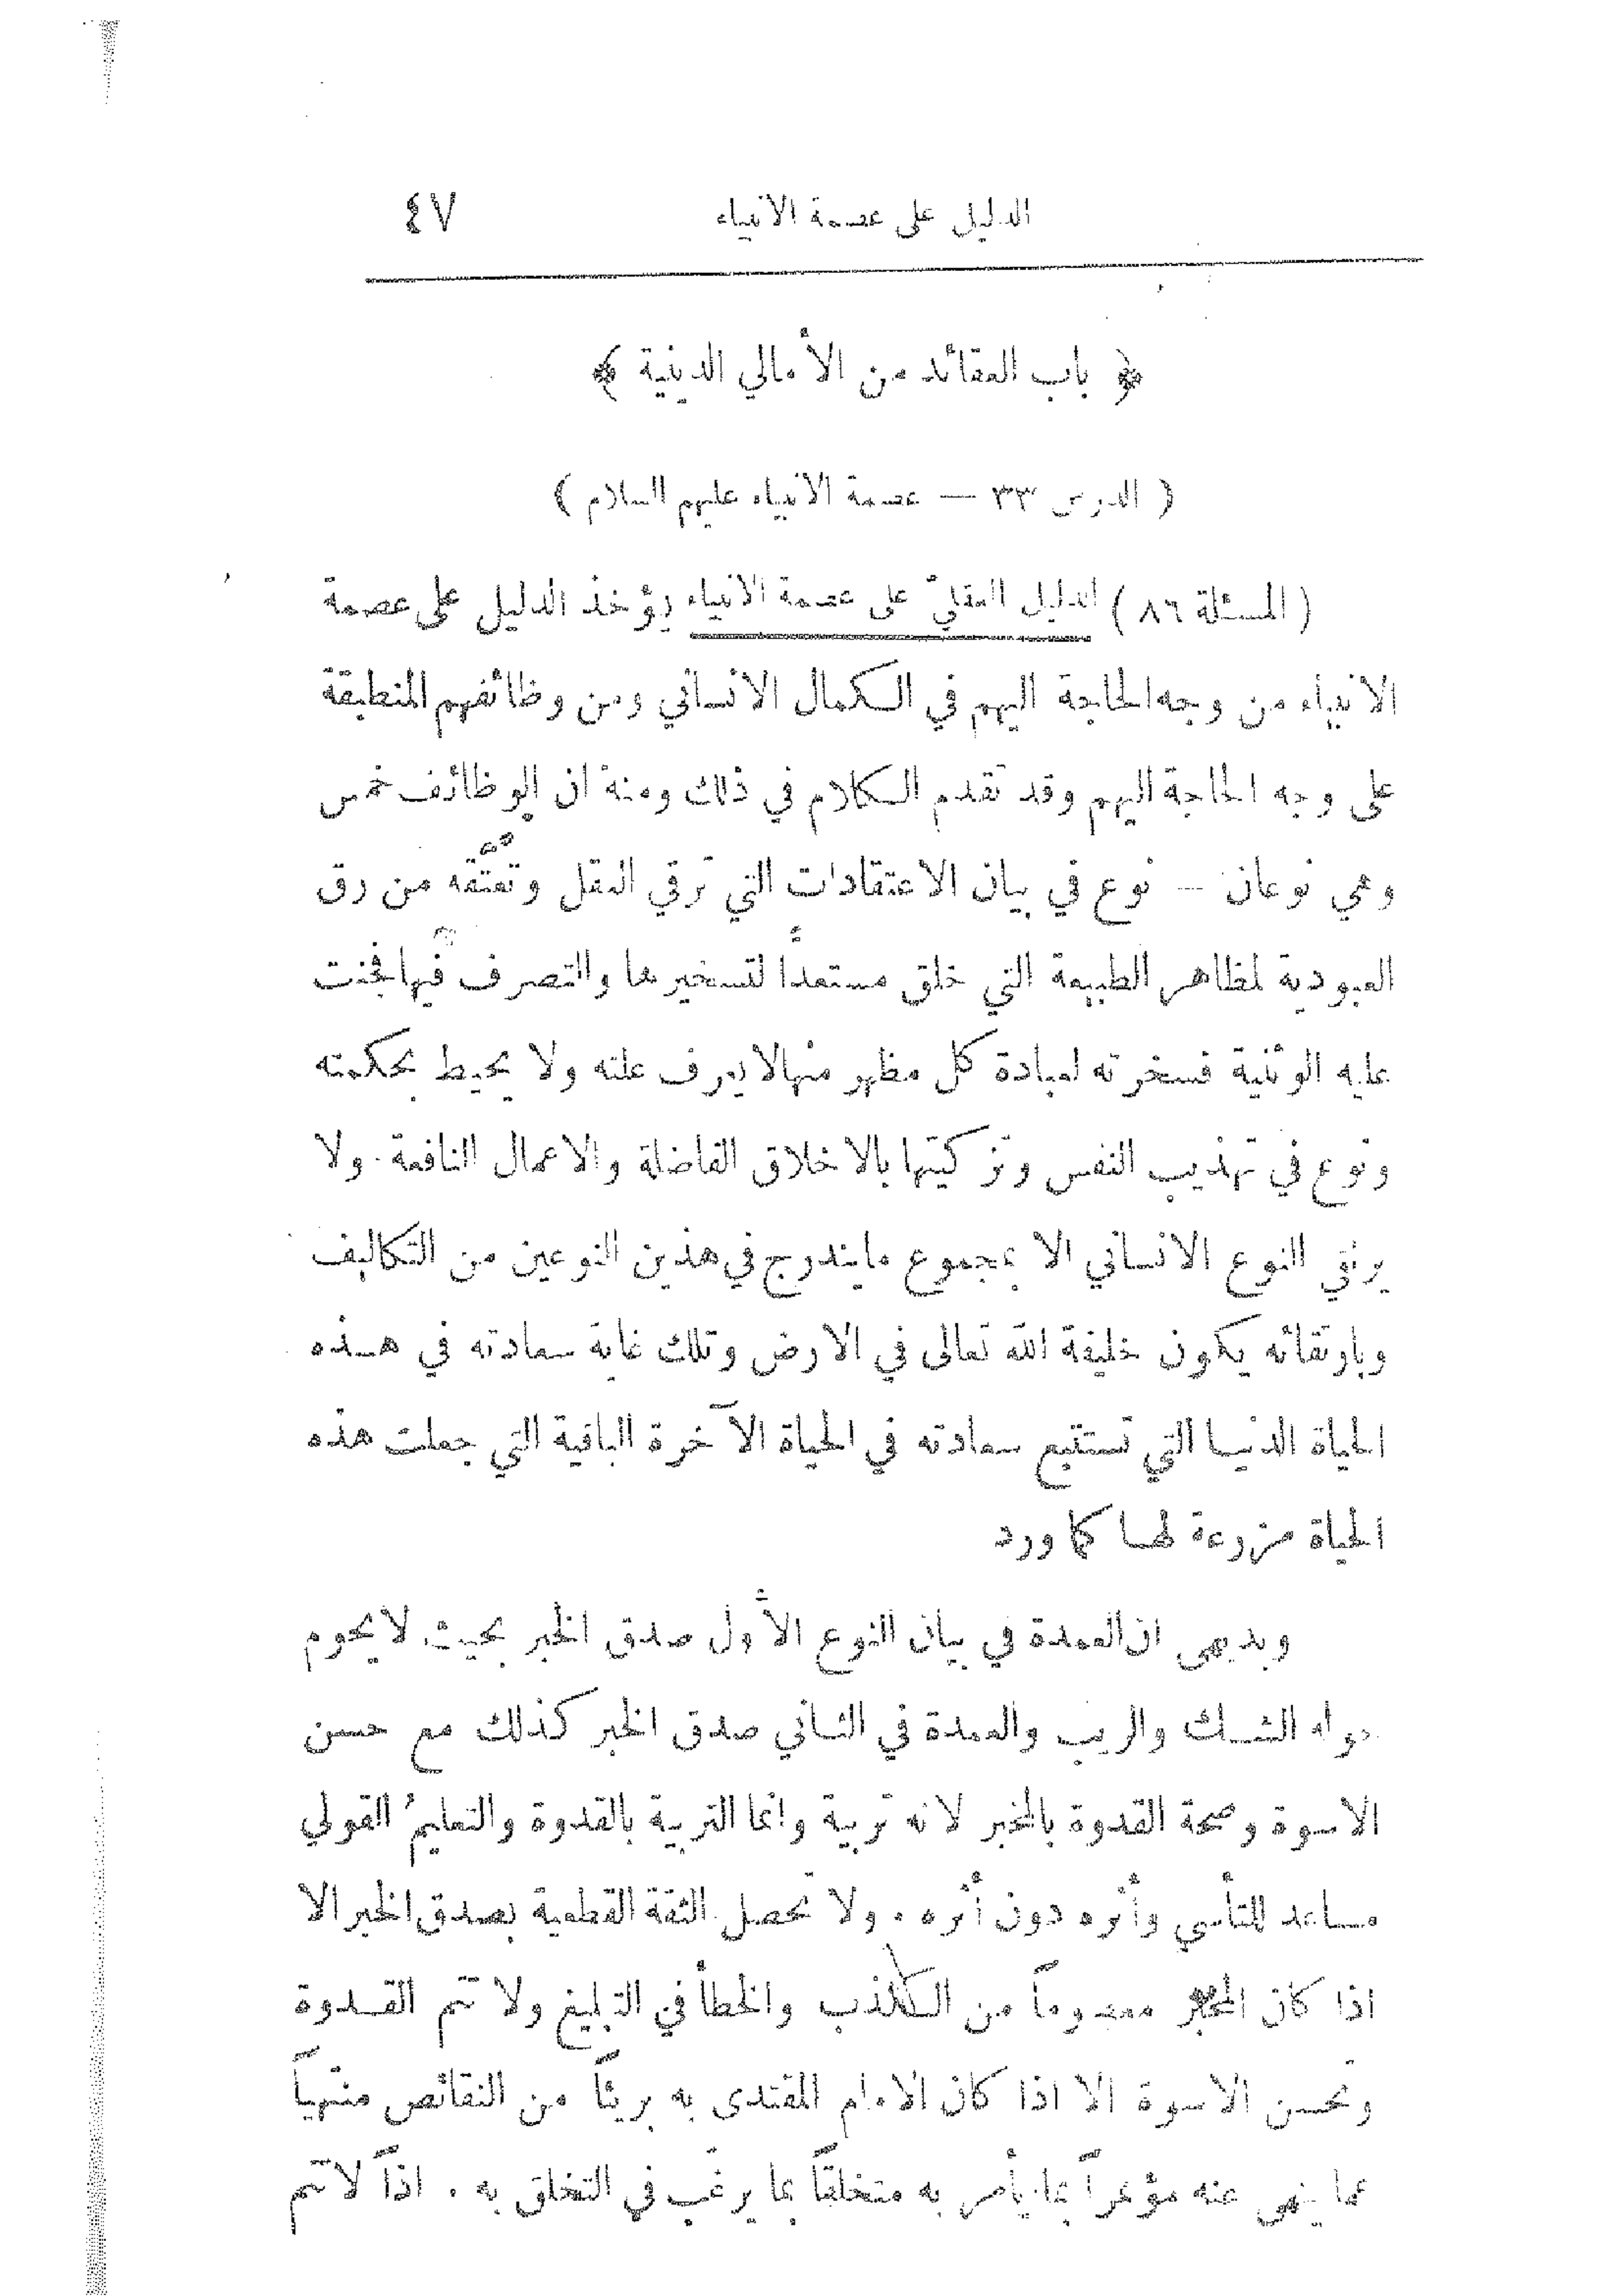 الدليل على عصمة الانبياء ٤٧
﴿ باب العقائد من الأمالي الدينية ﴾
( الدرس ٣٣ — عصمة الانبياء عليهم السلام )
( المسئلة ٨٦ ) الدليل العقليّ على عصمة الانبياء يؤخذ الدليل على عصمة
الانبياء من وجه الحاجة اليهم في الكمال الانساني ومن وظائفهم المنطبقة
على وجه الحاجة اليهم وقد تقدم الكلام في ذلك ومنه ان الوظائف خمس
وهي نوعان — نوع في بيان الاعتقادات التي ترقي العقل وتعتقه من رق
العبودية لمظاهر الطبيعة التي خلق مستعداً لتسخيرها والتصرف فيها فجنت
عليه الوثنية فسخرته لعبادة كل مظهر منها لا يعرف علته ولا يحيط بحكمته
ونوع في تهذيب النفس وتزكيتها بالاخلاق الفاضلة والاعمال النافعة. ولا
يرتقي النوع الانساني الا بمجموع مايندرج في هذين النوعين من التكاليف
وبارتقائه يكون خليفة الله تعالى في الارض وتلك غاية سعادته في هذه
الحياة الدنيا التي تستتبع سعادته في الحياة الآخرة الباقية التي جعلت هذه
الحياة مزرعة لها كما ورد
وبديهي ان العمدة في بيان النوع الأول صدق الخبر بحيث لا يحوم
حوله الشك والريب والعمدة في الثاني صدق الخبر كذلك مع حسن
الاسوة وصحة القدوة بالمخبر لانه تربية وانما التربية بالقدوة والتعليم القولي
مساعد للتأسي وأثره دون أثره . ولا تحصل الثقة القطعية بصدق الخبر الا
اذا كان المخبر معصوماً من الكذب والخطأ في التبليغ ولا تتم القدوة
وتحسن الاسوة الا اذا كان الامام المقتدى به بريئاً من النقائص منتهياً
عما ينهى عنه مؤتمراً بما يأمر به متخلقاً بما يرغب في التخلق به . اذاً لا تتم